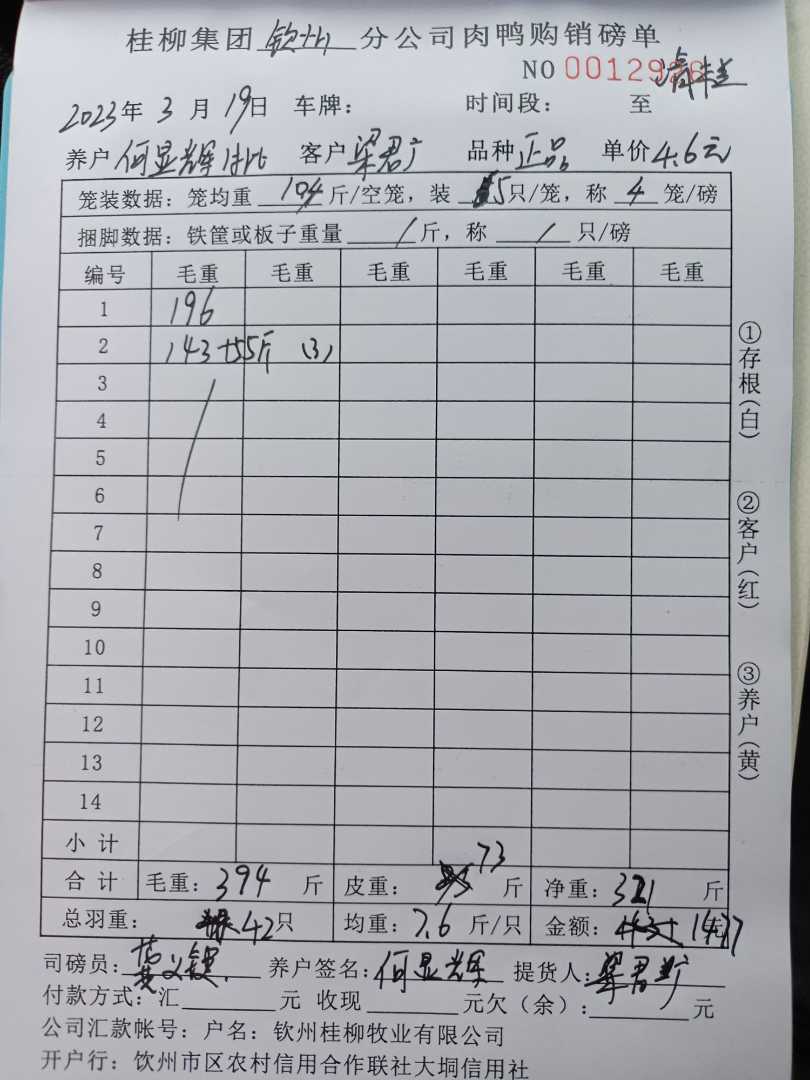 桂柳集团钦州分公司肉鸭购销磅单
NO 00129
2023年3月19日 车牌： 时间段： 至
养户何显辉 客户梁君广 品种正品 单价4.6元
笼装数据：笼均重 10.4 斤/空笼，装 5只/笼，称 4 笼/磅
捆脚数据：铁筐或板子重量 / 斤，称 / 只/磅
编号 毛重 毛重 毛重 毛重 毛重 毛重
1 196
2 143+55斤 (3)
3
4
5
6
7
8
9
10
11
12
13
14
小计
合计 毛重：394 斤 皮重：73 斤 净重：321 斤
总羽重：42只 均重：7.6 斤/只 金额：1477
司磅员： 养户签名：何显辉 提货人：梁君广
付款方式：汇 元 收现 元欠（余）： 元
公司汇款帐号：户名：钦州桂柳牧业有限公司
开户行：钦州市区农村信用合作联社大垌信用社
①存根(白)
②客户(红)
③养户(黄)